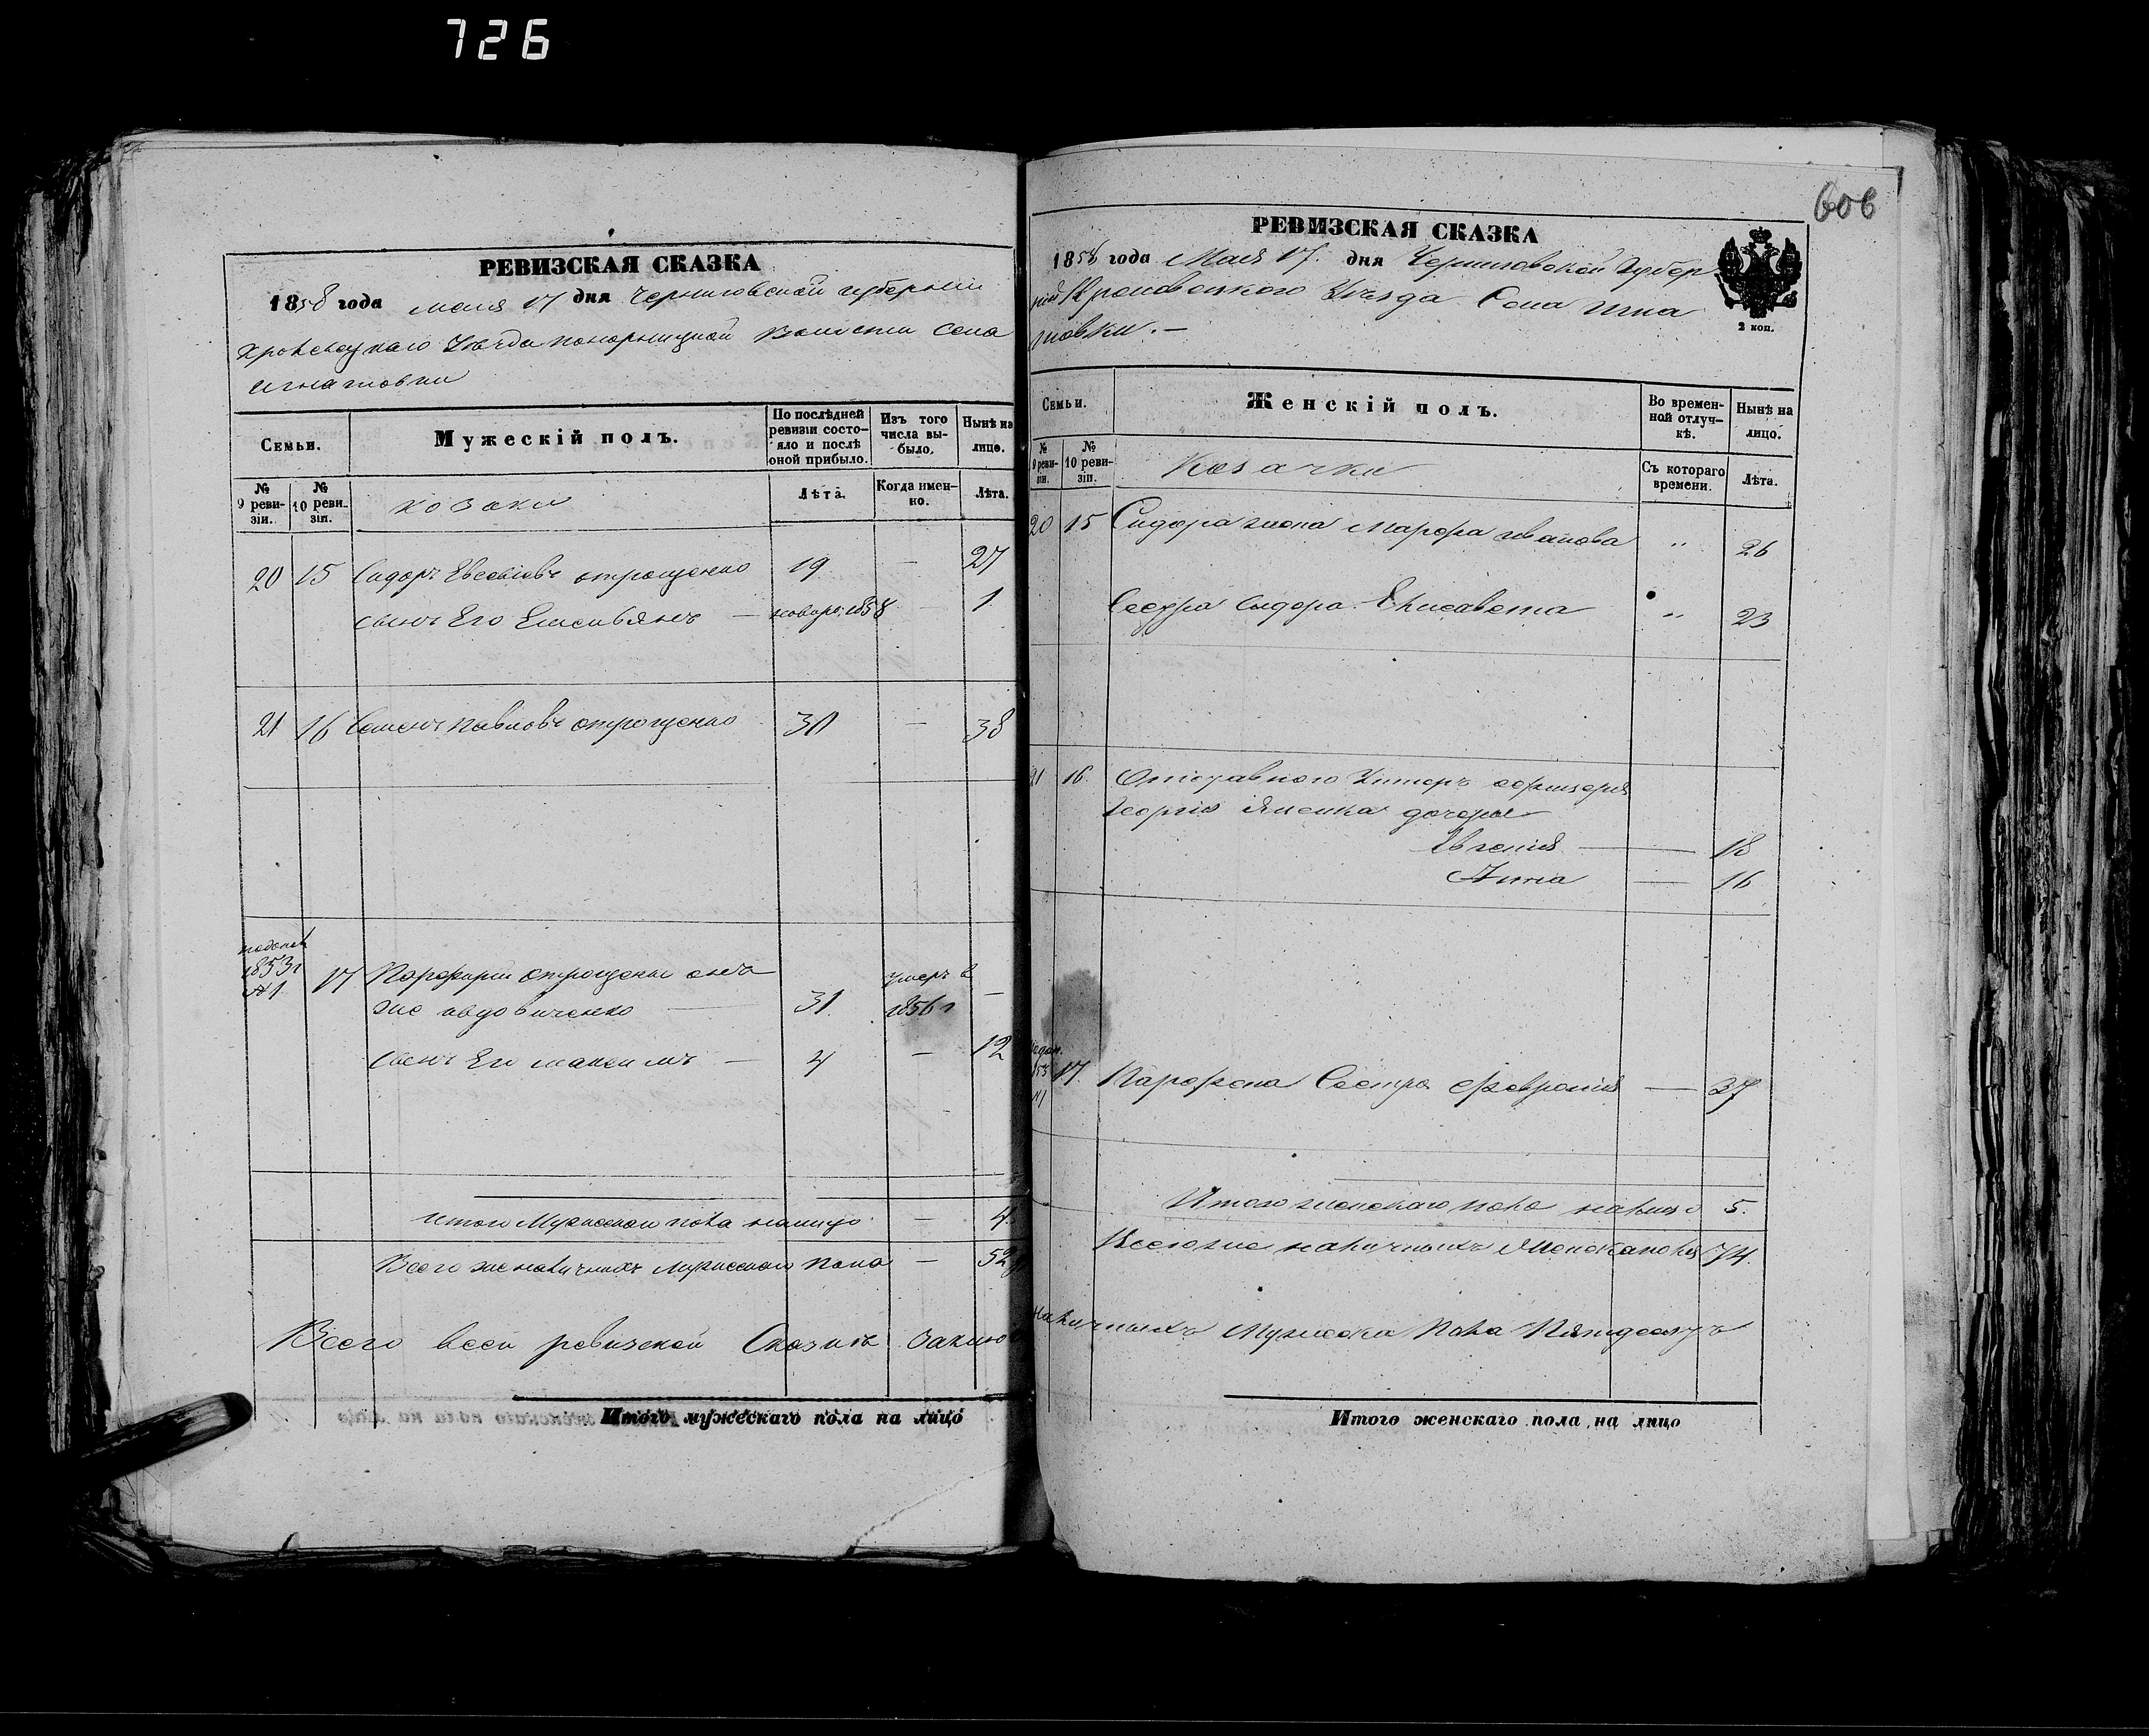 726
606
РЕВИЗСКАЯ СКАЗКА
1858 года мая 17 дня Черниговской губернии
Кролевецкаго Уезда понорницкой Волости Села
Игнатовки
Семьи.
Мужескій полъ.
По послѣдней ревизіи состояло и послѣ оной прибыло.
Изъ того числа выбыло.
Нынѣ на лицо.
№ 9 ревизіи.
№ 10 ревизіи.
козаки
Лѣта.
Когда именно.
Лѣта.
20 15 Сидоръ Евсевіевъ отрощенко 19 — 27
сынъ Его Емельянъ — новоро: 1858 — 1
21 16 Семенъ Павловъ отрощенко 30 — 38
1853 г №1 17 Порфирий отрощенко онъ
же авдовиченко 31. умеръ в 1856 г —
сынъ Его максимъ — 4 — 12
итого Мужескаго пола налицо — 4.
Всего же наличныхъ мужескаго пола — 52
Всего всей ревизской Сказкъ заклю
Итого мужескаго пола на лицо
РЕВИЗСКАЯ СКАЗКА
1858 года Мая 17. дня Черниговской Губер
ніи Кролевецкого Уѣзда Села Игна
товки. —
2 коп.
Семьи.
Женскій полъ.
Во временной отлучкѣ.
Нынѣ на лицо.
№ 9 ревизіи.
№ 10 ревизіи.
Козачки
Съ котораго времени.
Лѣта.
20 15 Сидора жена Марфа иванова " 26
Сестра Сидора Елисавета " 23
21 16. Отставного Унтеръ офицера
Георгія дочеры
Евгенія — 18
Анна — 16
17. Парфена Сестра Февронія — 37
Итого женскаго пола налицо 5.
Всего же наличныхъ Женска пола 74.
наличныхъ Мужеска Пола Пятдесятъ
Итого женскаго пола на лицо